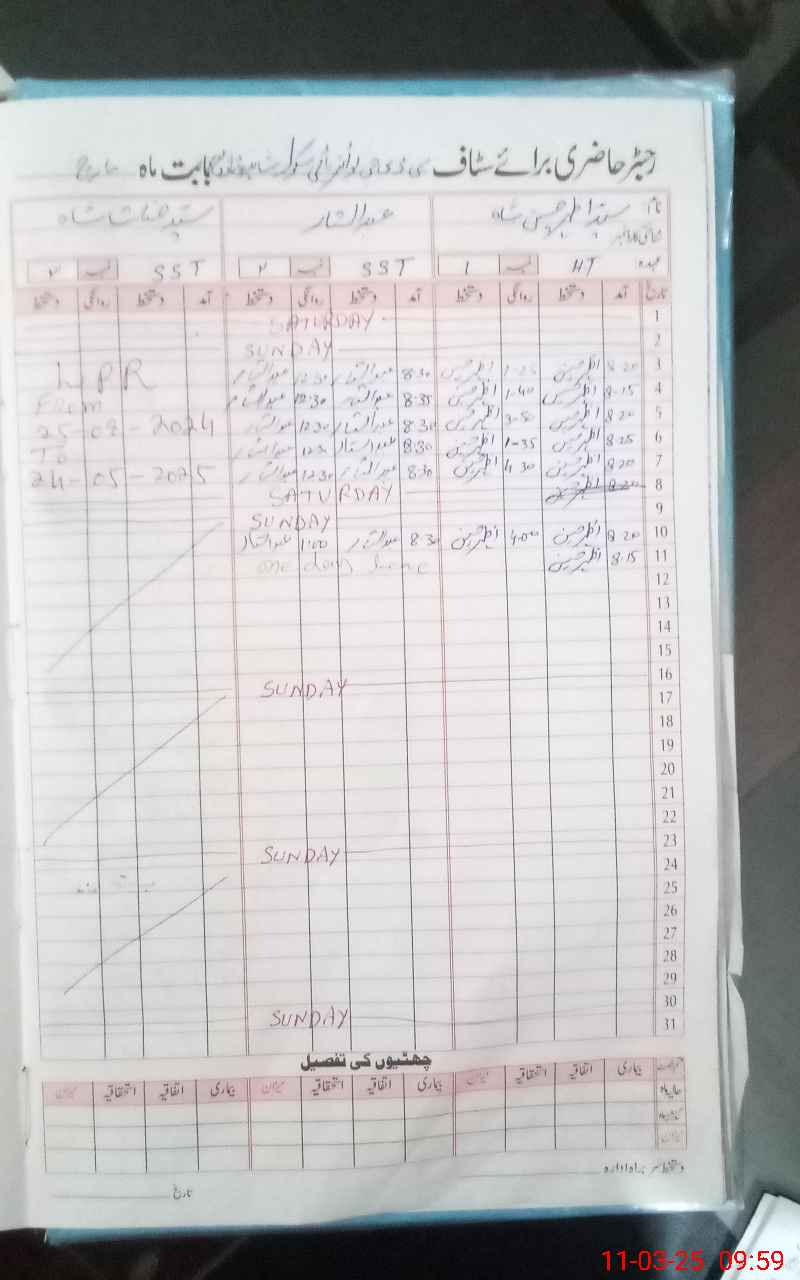 رجسٹر حاضری برائے سٹاف بابت ماہ مارچ
نام سید اظہر حسین شاہ عبدالستار سید شاہ
شناختی کارڈ نمبر
عہدہ HT نمبر 1 SST نمبر ۲ SST نمبر ۲
تاریخ آمد دستخط روانگی دستخط آمد دستخط روانگی دستخط آمد دستخط روانگی دستخط
1 SATURDAY
2 SUNDAY
3 8-20 اظہر حسین 1-25 اظہر حسین 8:30 عبدالستار 12:30 عبدالستار LPR
4 8-15 اظہر حسین 1-40 اظہر حسین 8:35 عبدالستار 12:30 عبدالستار From
5 8-20 اظہر حسین اظہر حسین 8:30 عبدالستار 12:30 عبدالستار 25-08-2024
6 8-25 اظہر حسین 1-35 اظہر حسین 8:30 عبدالستار 12:30 عبدالستار To
7 8-20 اظہر حسین 4-30 اظہر حسین 8:30 عبدالستار 12:30 عبدالستار 24-05-2025
8 8-20 اظہر حسین SATURDAY
9 SUNDAY
10 8-20 اظہر حسین 4-00 اظہر حسین 8:30 عبدالستار 1:00 عبدالستار
11 8-15 اظہر حسین one day
12
13
14
15
16 SUNDAY
17
18
19
20
21
22
23 SUNDAY
24
25
26
27
28
29
30 SUNDAY
31
چھٹیوں کی تفصیل
بیماری اتفاقیہ استحقاقیہ میزان بیماری اتفاقیہ استحقاقیہ میزان بیماری اتفاقیہ استحقاقیہ میزان
حالیہ ماہ
گذشتہ ماہ
میزان
دستخط سربراہ ادارہ
تاریخ
11-03-25 09:59